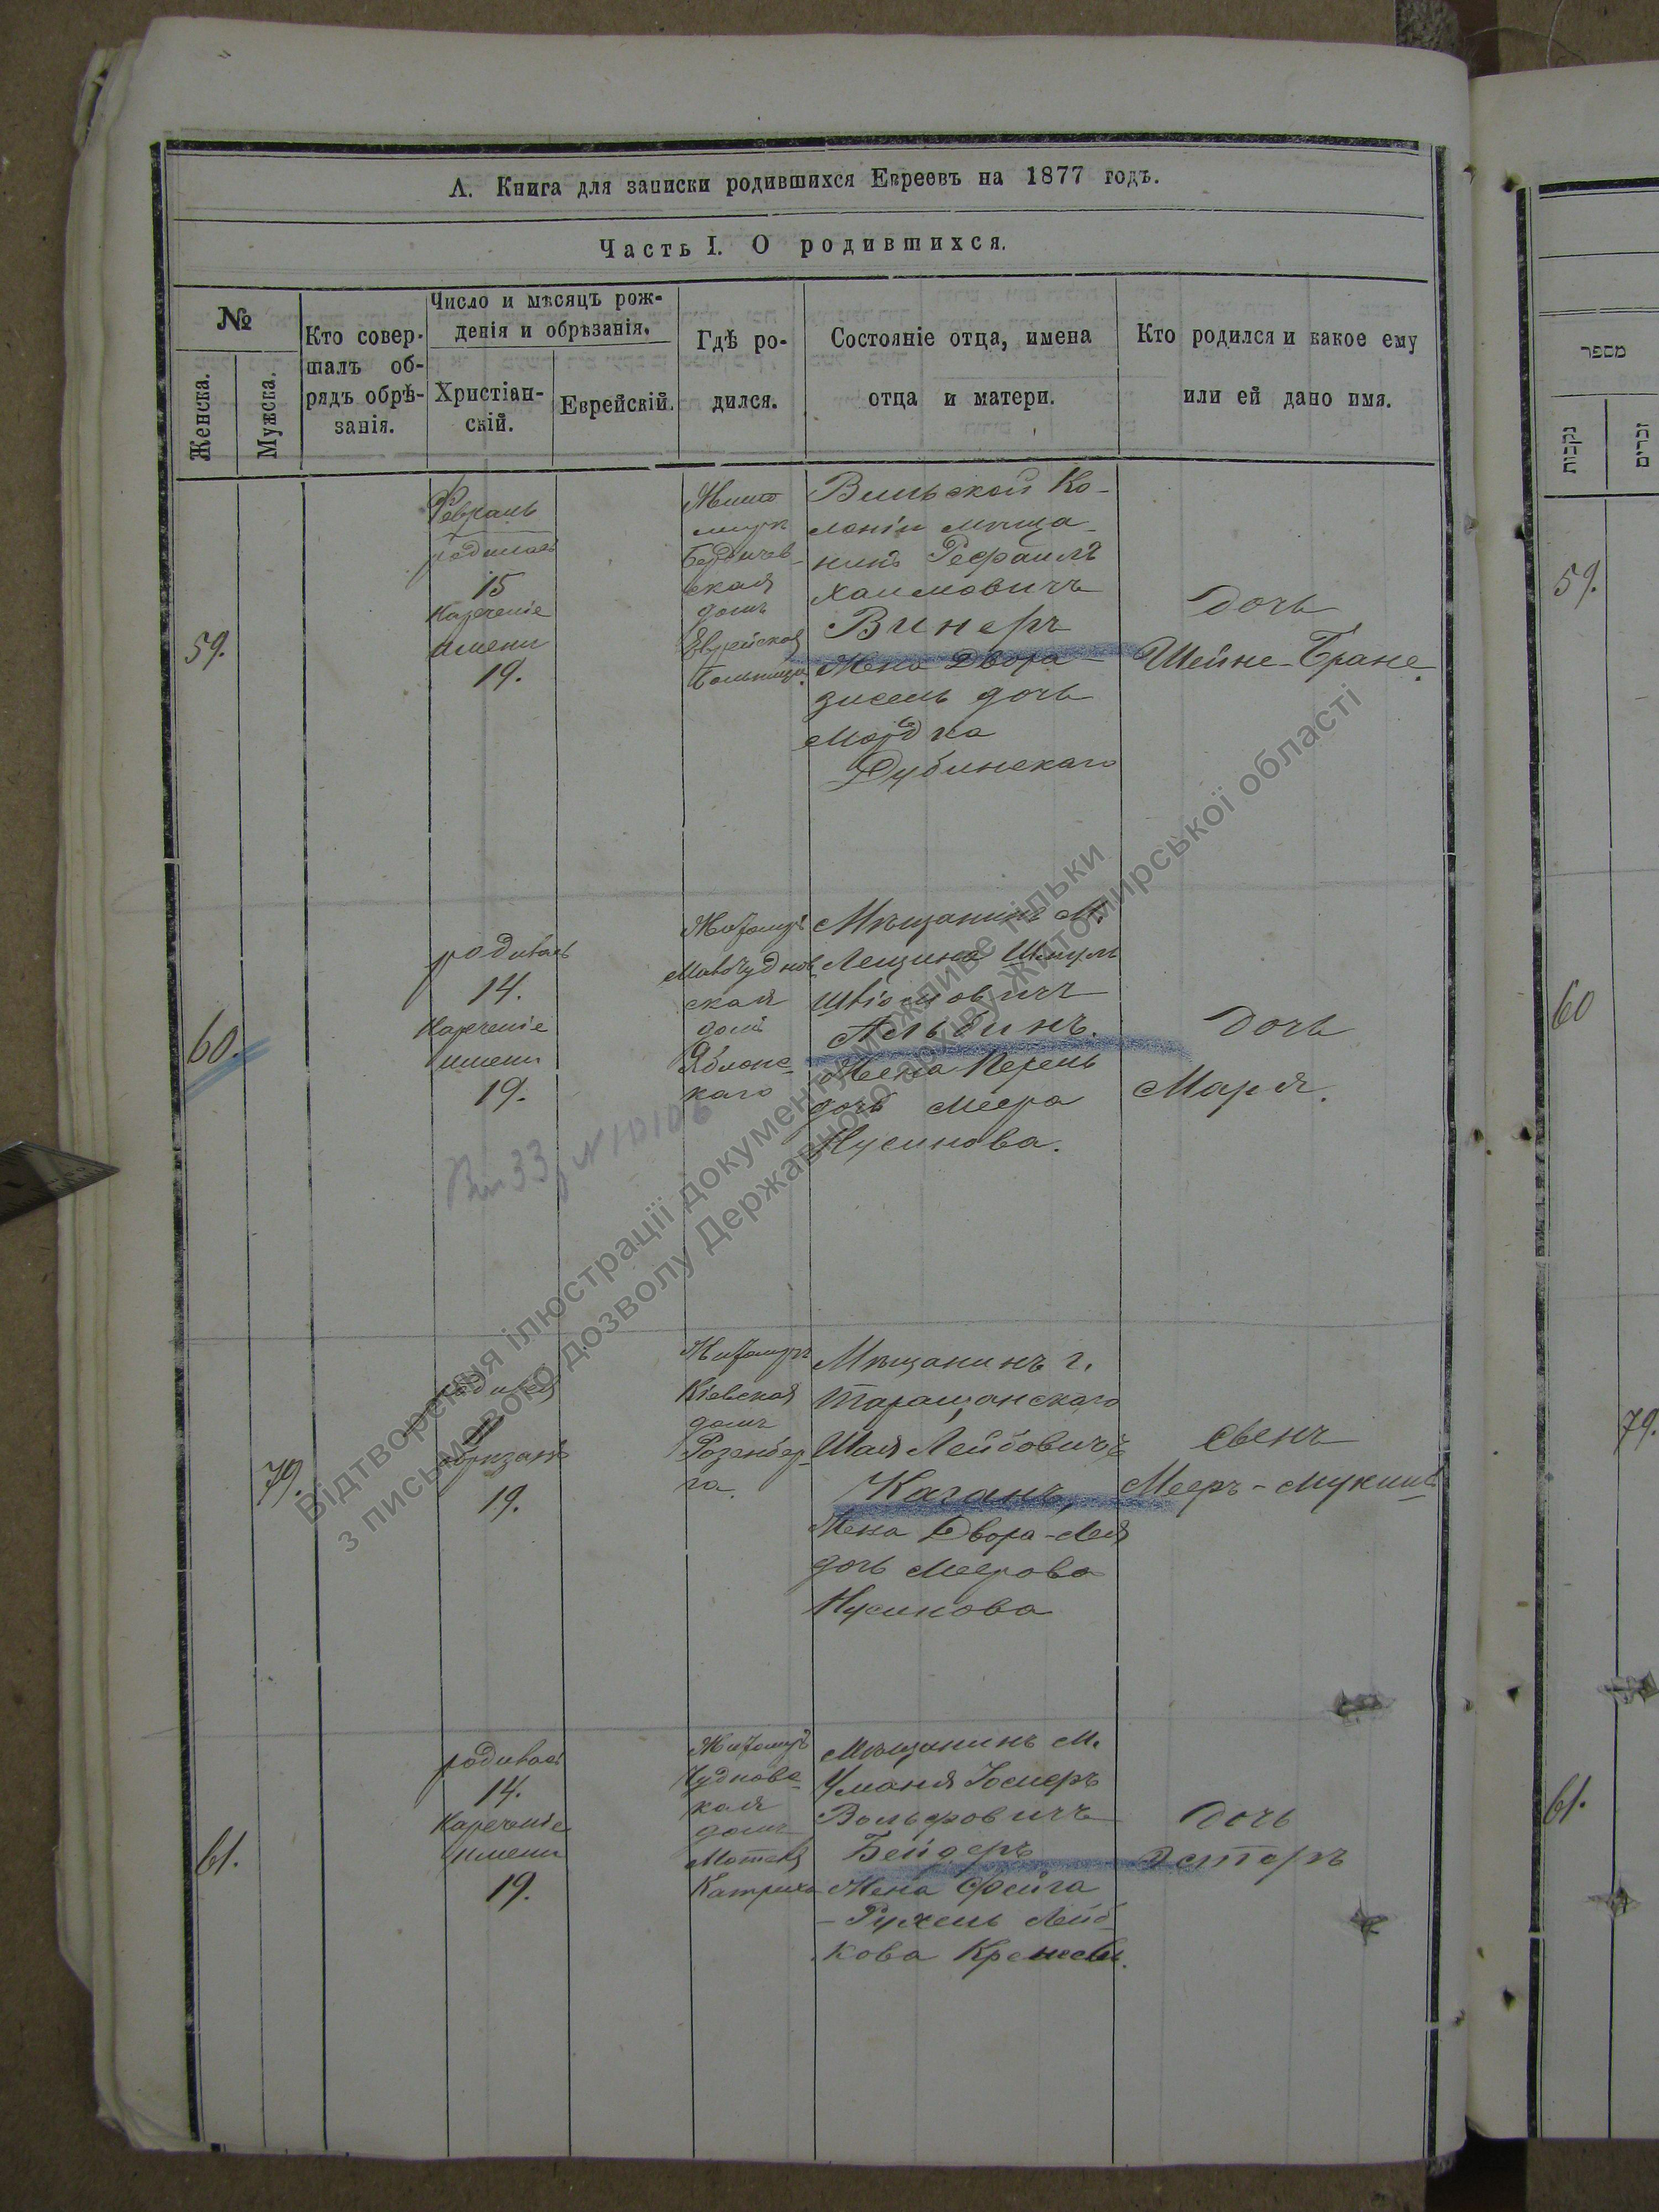 А. Книга для записки родившихся Евреевъ на 1877 годъ.
Часть I. О родившихся.
№
Женска.
Мужска.
Кто совер-
шалъ об-
рядъ обрѣ-
занія.
Число и мѣсяцъ рож-
денія и обрѣзанія.
Христіан-
скій.
Еврейскій.
Гдѣ ро-
дился.
Состояніе отца, имена
отца и матери.
Кто родился и какое ему
или ей дано имя.
59.
Февраль
родилась
15
Нареченіе
имени
19.
Бердичев-
ская
домъ
Еврейская
больница.
Вильской Ко-
лоніи мѣща-
нинъ Рефаилъ
Хаимовичъ
Винеръ
Жена Двора-
зисель дочь
Мордка
Дубинскаго
Дочь
Шейне-Бране.
60.
родилась
14.
Нареченіе
имени
19.
Житомиръ
ская
домъ
Яблонс-
каго
Мѣщанинъ М.
Лещина Шмуль
Альбинъ.
Жена Перель
дочь Меера
Нусинова.
Дочь
Марія.
33 N 10106
79.
родился
обрѣзанъ
19.
Житомиръ
Кіевская
домъ
Розенбер-
га.
Мѣщанинъ г.
Таращанскаго
Шая Лейбовичъ
Каганъ,
Жена Двора-Лея
дочь Меерова
Нусинова
Сынъ
Мееръ-
61.
родилась
14.
Нареченіе
имени
19.
Житомиръ
Чудновс-
кая
домъ
Мѣщанинъ М.
Уманя
Вольфовичъ
Бейдеръ
Жена Фейга
-Рухель Лейб-
кова
Дочь
Эстеръ
מספר
נקבות
זכרים
59.
60
79.
61.
Відтворення ілюстрації документу можливе тільки
з письмового дозволу Державного архіву Житомирської області